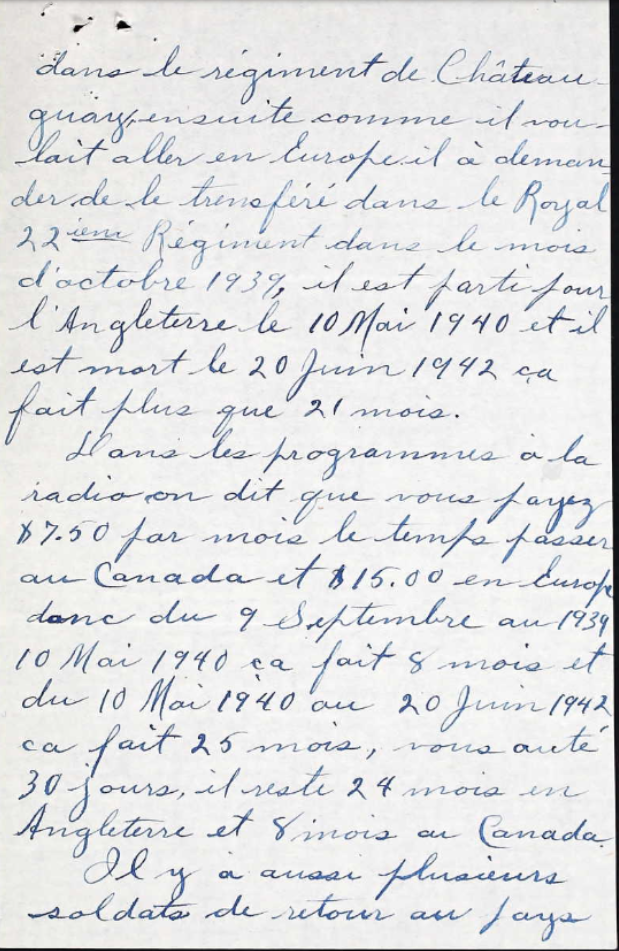 dans le régiment de Château-
guay, ensuite comme il vou-
lait aller en Europe il à deman
der de le transféré dans le Royal
22ième Régiment dans le mois
d'octobre 1939, il est parti pour
l'Angleterre le 10 Mai 1940 et il
est mort le 20 Juin 1942 ça
fait plus que 21 mois.
Dans les programmes à la
radio on dit que vous payez
$7.50 par mois le temps passer
au Canada et $15.00 en Europe
donc du 9 Septembre au 1939
10 Mai 1940 ça fait 8 mois et
du 10 Mai 1940 au 20 Juin 1942
ca fait 25 mois, vous auté
30 jours, il reste 24 mois en
Angleterre et 8 mois au Canada.
Il y à aussi plusieurs
soldats de retour au pays